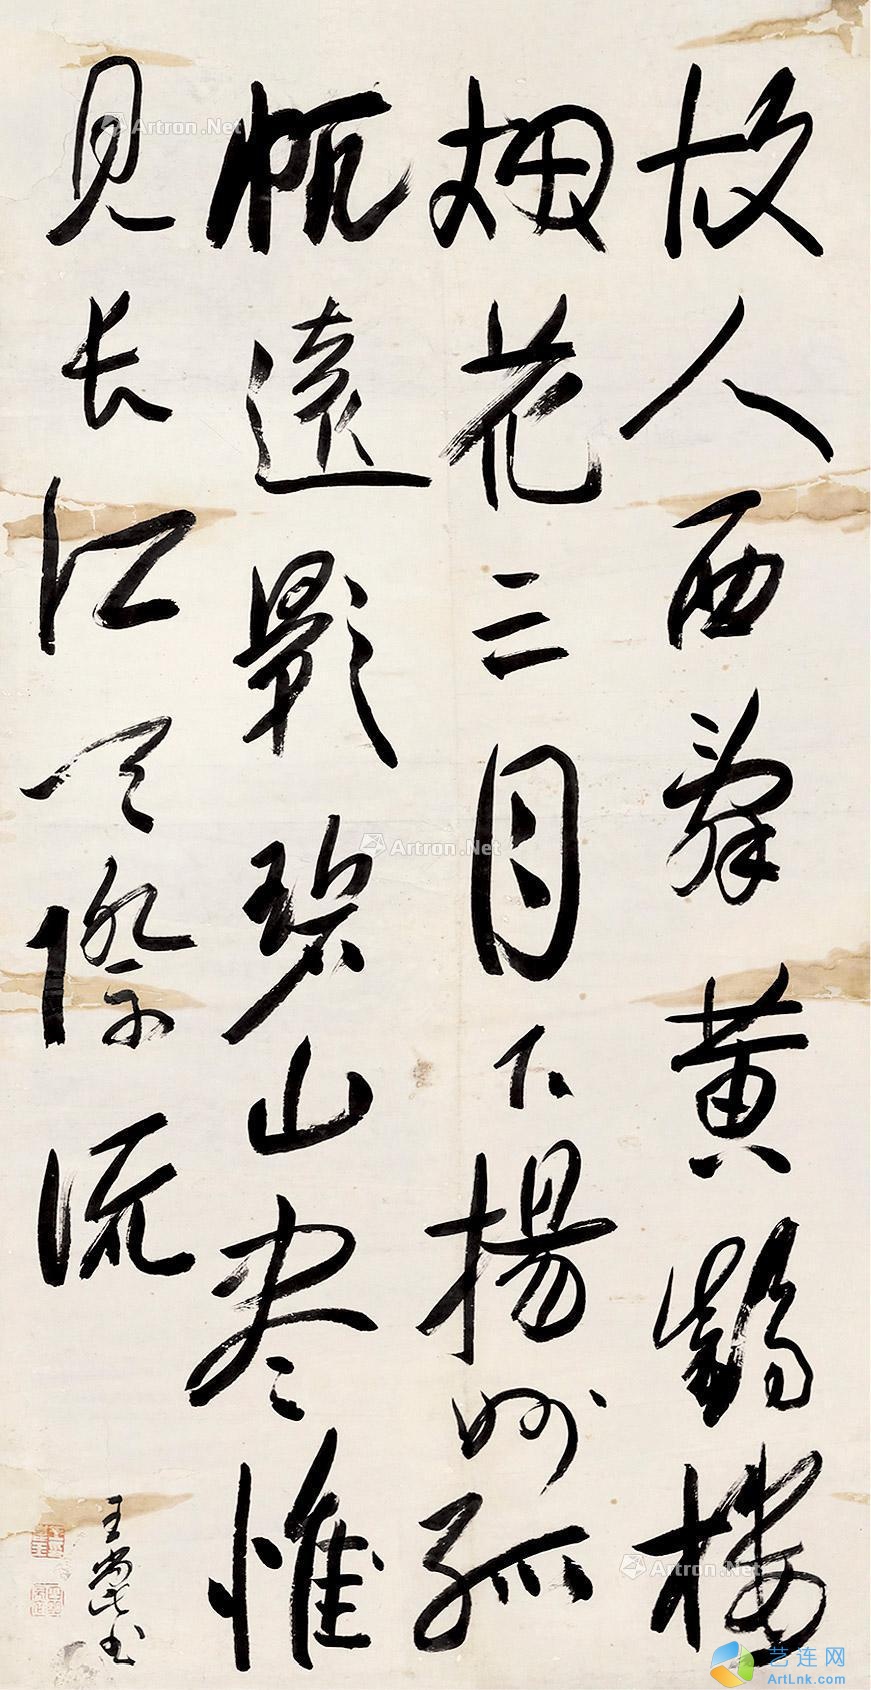 故人西辭黄鶴樓
烟花三月下揚州孤
帆遠影碧山尽惟
見长江天際流
王蘀书
Artron.Net
Artron.Net
Artron.Net
艺连网
ArtLnk.com